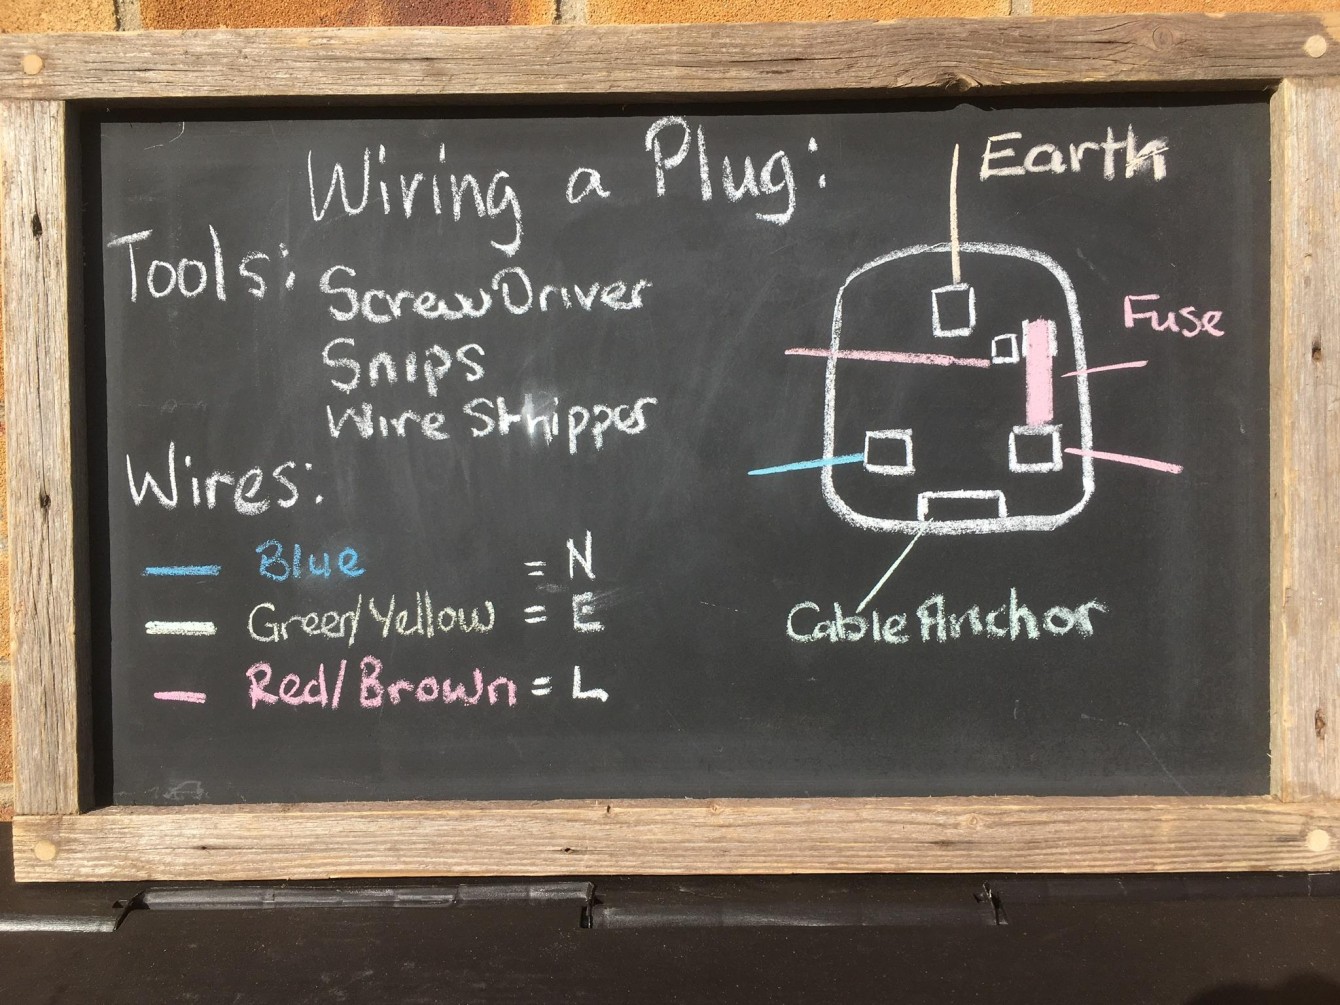 Wiring a Plug:
Tools:
ScrewDriver
Snips
Wire Stripper
Wires:
Blue = N
Green/Yellow = E
Red/Brown = L
Earth
Fuse
Cable Anchor